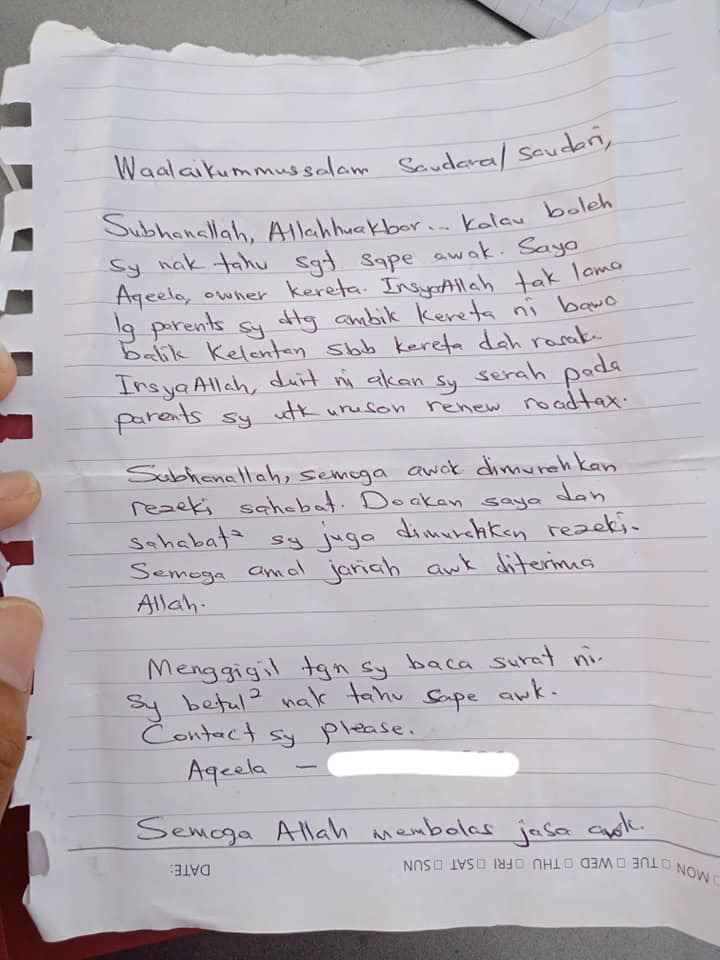 Waalaikummussalam Saudara/saudari,
Subhanallah, Allahhuakbar... Kalau boleh
sy nak tahu sgt sape awak. Saya
Aqeela, owner kereta. InsyaAllah tak lama
lg parents sy dtg ambik kereta ni bawa
balik Kelantan sbb kereta dah rosak.
InsyaAllah, duit ni akan sy serah pada
parents sy utk uruson renew roadtax.
Subhanallah, semoga awak dimurahkan
rezeki sahabat. Doakan saya dan
sahabat² sy juga dimurahkan rezeki.
Semoga amal jariah awk diterima
Allah.
Menggigil tgn sy baca surat ni.
Sy betul² nak tahu sape awk.
Contact sy please.
Aqeela –
Semoga Allah membalas jasa awk.
DATE: □ MON □ TUE □ WED □ THU □ FRI □ SAT □ SUN